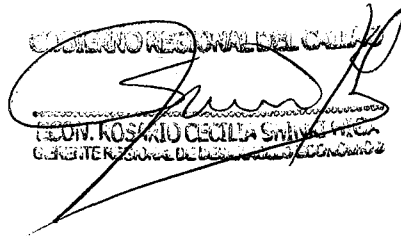 GOBIERNO REGIONAL DEL CALLAO
ECON. ROSARIO CECILIA
GERENTE REGIONAL DE DESARROLLO ECONOMICO